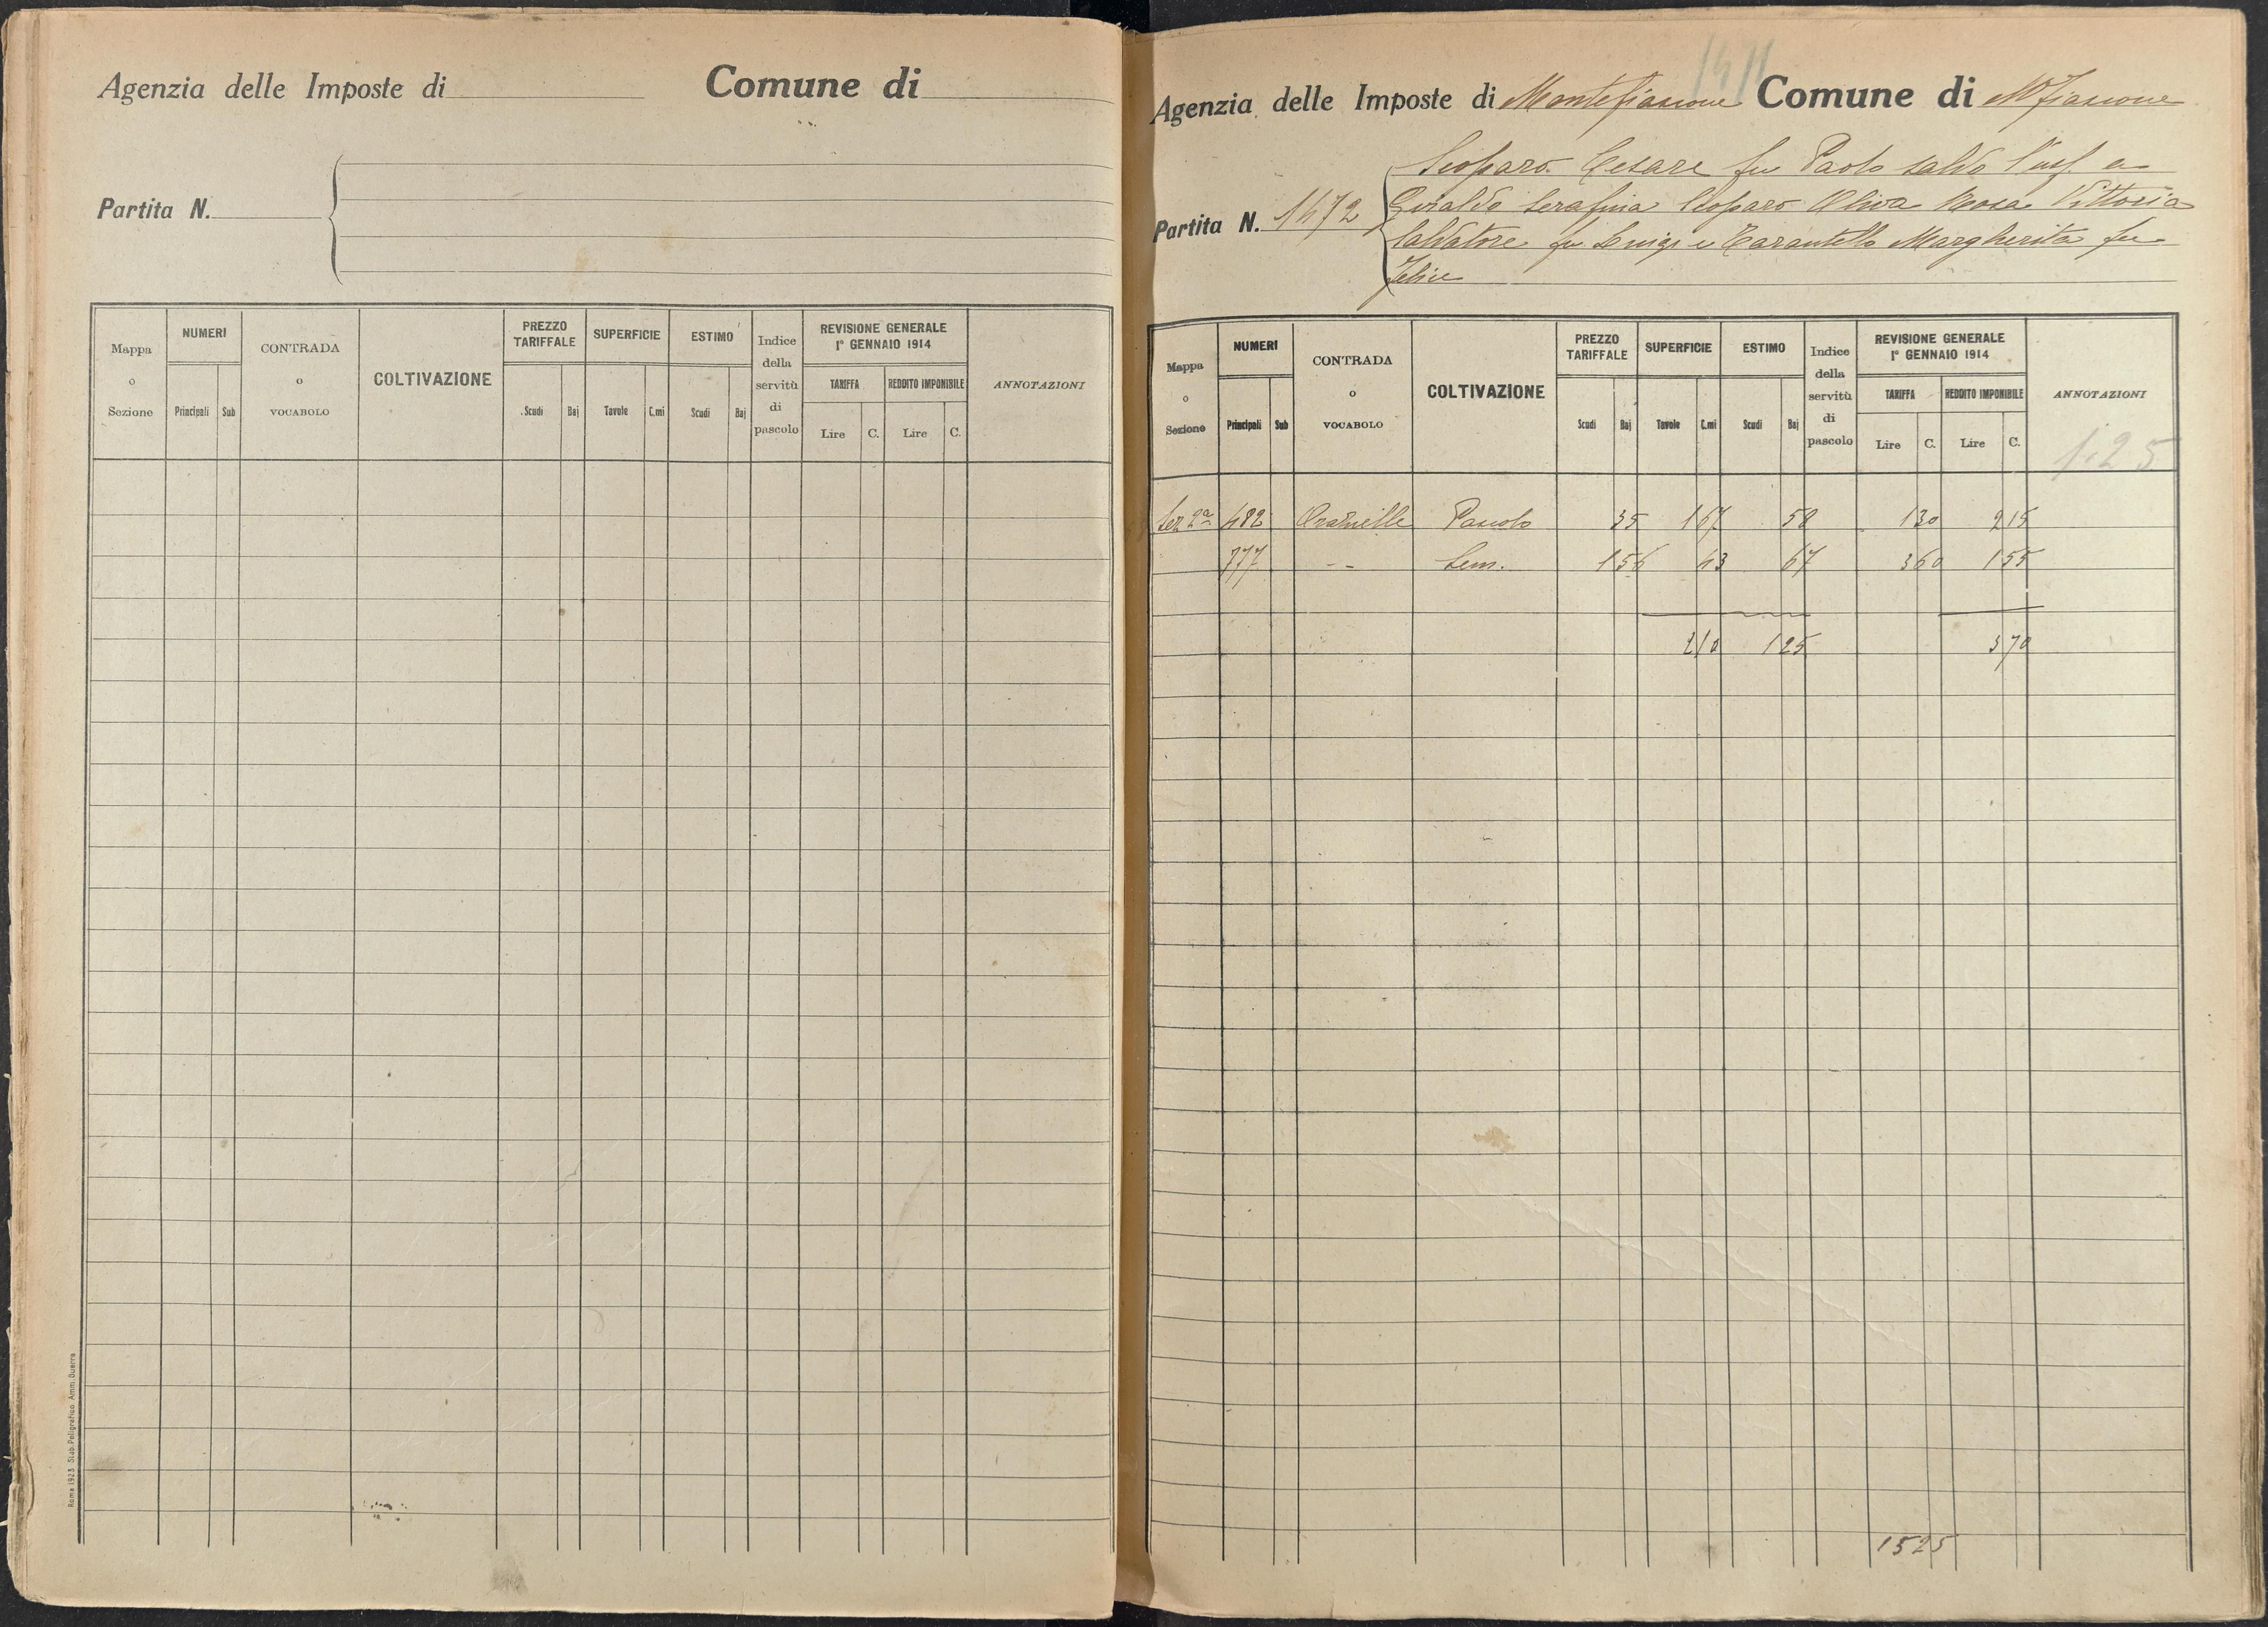 Agenzia delle Imposte di Comune di
Partita N.
Mappa o Sezione NUMERI Principali Sub CONTRADA o VOCABOLO COLTIVAZIONE PREZZO TARIFFALE Scudi Baj SUPERFICIE Tavole C.mi ESTIMO Scudi Baj Indice della servitù di pascolo REVISIONE GENERALE 1° GENNAIO 1914 TARIFFA Lire C. REDDITO IMPONIBILE Lire C. ANNOTAZIONI
Roma 1923 Stab. Poligrafico Amm. Guerra
1471
Agenzia delle Imposte di Montefiascone Comune di Mfiascone
Scoparo Cesare fu Paolo salvo l'usf. a
Partita N. 1472 Giraldo Serafina Scoparo Oliva Rosa Vittoria
Salvatore fu Luigi e Tarantello Margherita fu
Felice
Mappa o Sezione NUMERI Principali Sub CONTRADA o VOCABOLO COLTIVAZIONE PREZZO TARIFFALE Scudi Baj SUPERFICIE Tavole C.mi ESTIMO Scudi Baj Indice della servitù di pascolo REVISIONE GENERALE 1° GENNAIO 1914 TARIFFA Lire C. REDDITO IMPONIBILE Lire C. ANNOTAZIONI
1.25
Sez 2a 482 Pascolo 35 167 58 130 215
777 -- Sem. 156 43 67 360 155
210 125 370
1525